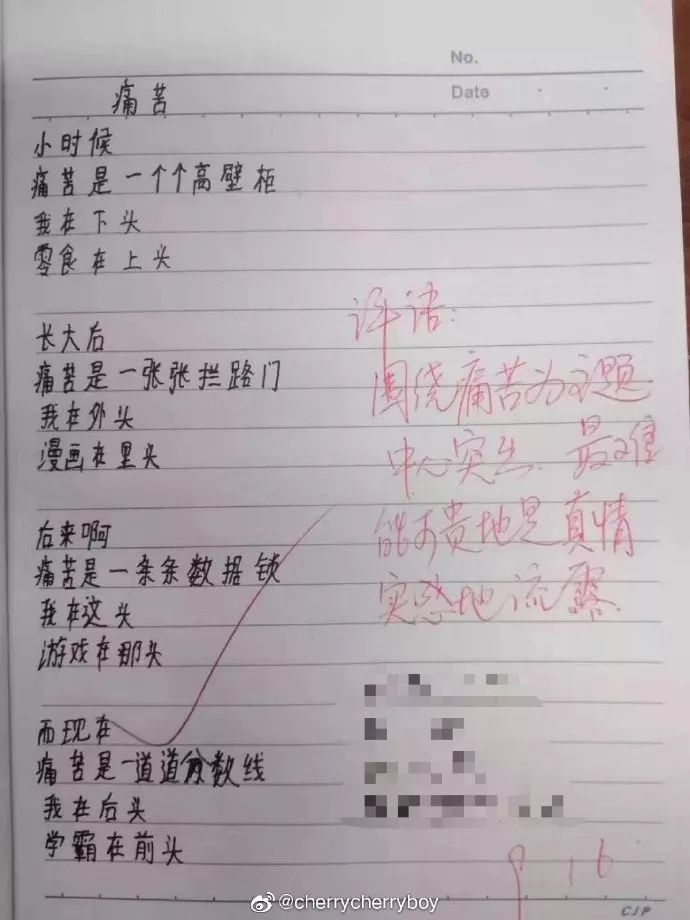 No.
Date
痛苦
小时候
痛苦是一个个高壁柜
我在下头
零食在上头
长大后
痛苦是一张张拦路门
我在外头
漫画在里头
后来啊
痛苦是一条条数据锁
我在这头
游戏在那头
而现在
痛苦是一道道分数线
我在后头
学霸在前头
评语:
围绕痛苦为主题
中心突出、最难
能可贵地是真情
实感地流露
9.16
CJP
@cherrycherryboy